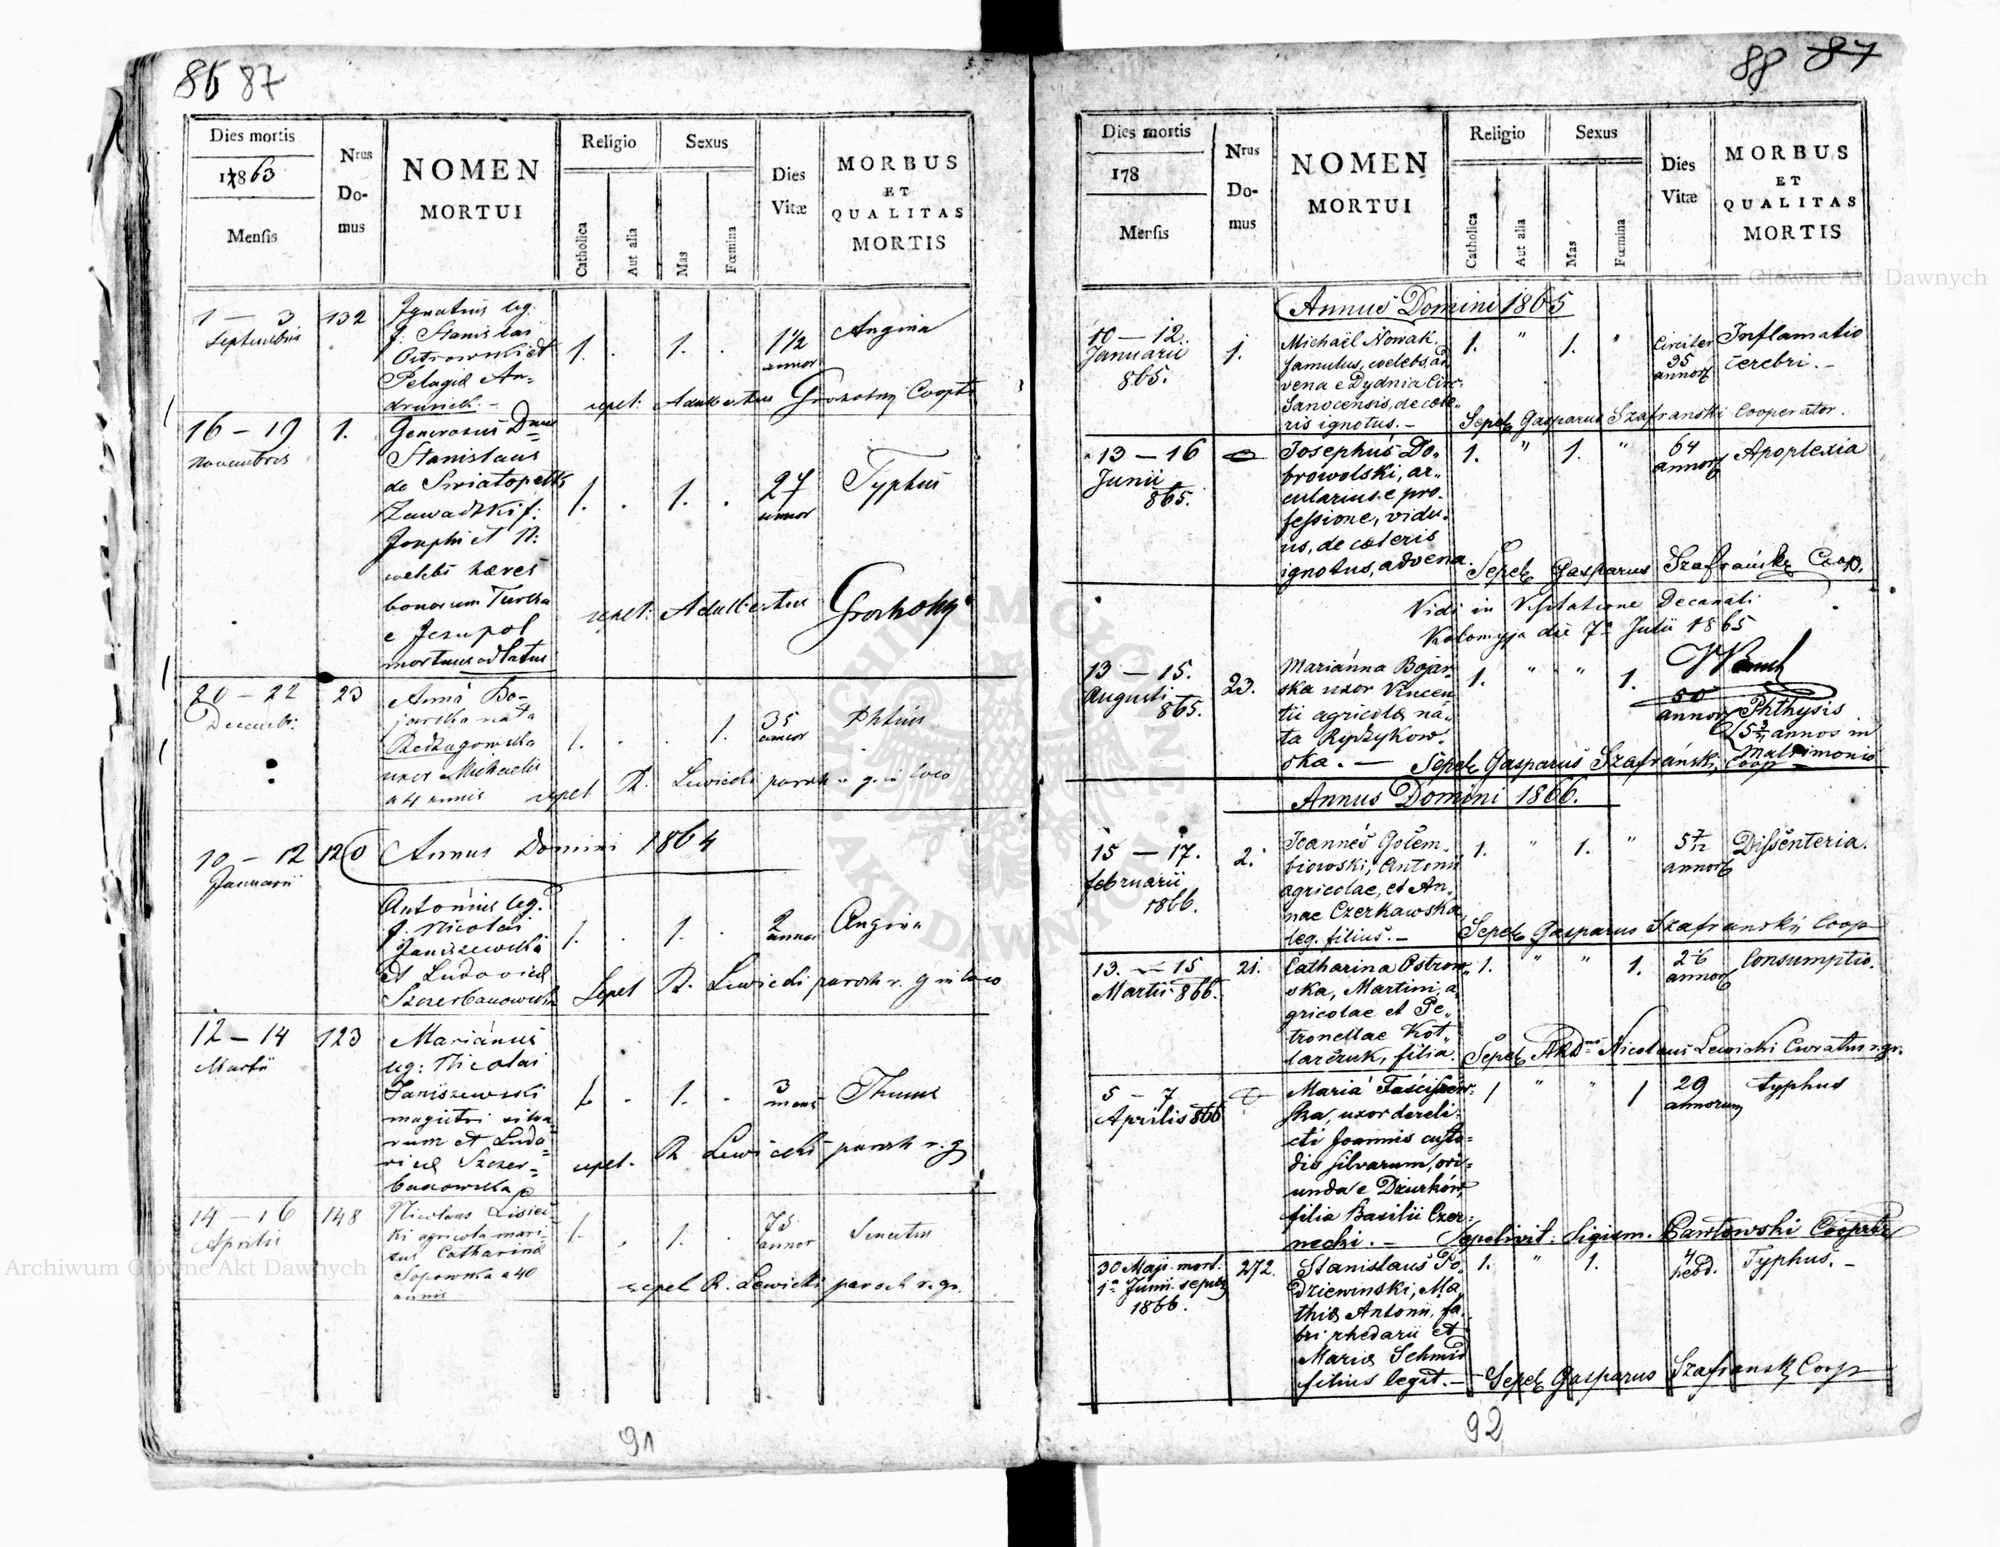 86 87
Dies mortis
1863
Mensis
Nrus
Do-
mus
NOMEN
MORTUI
Religio
Catholica
Aut alia
Sexus
Mas
Fœmina
Dies
Vitæ
MORBUS
ET
QUALITAS
MORTIS
1 — 3
Septembris
132
Ignatius leg.
f. Stanislai
Ostrowski et
Pelagiæ An-
drusieck. —
1. . 1. .
1 1/2
annor
Angina
sepel: Adalbertus Grocholny Coopr
16 — 19
Novembris
1.
Generosus Dnus
Stanislaus
de Swiatopełk
Zawadzki f:
Josephi et N:
cœlebs hæres
bonorum Turka
e Jezupol
mortuus adlatus
1. . 1. .
27
annor
Typhus
sepel: Adalbertus
20 — 22
Decembr.
23
Anna Bo-
jarska nata
uxor Michaelis
a 4 annis
1. . . 1.
35
annor
Phtisis
sepel R. Lewicki paroch r. g. in loco
10 — 12
Januarii
120
Annus Domini 1864
Antonius leg.
f. Nicolai
Janiszewski
et Ludovicæ
Szczerbanowska
1. . 1. .
2
annor
Angina
Sepel R. Lewicki paroch r. g in loco
12 — 14
Martii
123
Marianus
leg: Nicolai
Janiszewski
magistri silva
rum et Ludo=
vicæ Szczer=
banowska
1. . 1. .
3
mens
sepel. R Lewicki paroch r. g
14 — 16
Aprilis
148
Nicolaus Lisiec-
ki agricola mari-
tus Catharinæ
Sopowska a 40
annis
1. . 1. .
75
annor
Senectus
sepel R. Lewicki paroch r. gr.
91
88 87
Dies mortis
178
Mensis
Nrus
Do-
mus
NOMEN
MORTUI
Religio
Catholica
Aut alia
Sexus
Mas
Fœmina
Dies
Vitæ
MORBUS
ET
QUALITAS
MORTIS
Annus Domini 1865
10 — 12.
Januarii
865.
1.
Michaël Nowak.
famulus, coelebs, ad
vena e Dydnia Circ.
Sanocensis, de cœte-
ris ignotus. —
1. " 1. "
Circiter
35
annor
Inflamatio
cerebri. —
Sepel Gasparus Szafranski Cooperator.
13 — 16
Junii
865.
Josephus Do„
browolski, ar„
cularius e pro.
fessione, vidu„
us, de cœteris
ignotus, advena.
1. " 1. "
64
annor
Apoplexia
Sepel Gasparus Szafrański Coop.
Vidi in Visitatione Decanali
Kolomyja die 7a Julii 1865
13 — 15.
Augusti
865.
23.
Marianna Bojar„
ska uxor Vincen„
tii agricolæ na„
ta Rydzykow„
ska. —
1. " " 1.
50
annor
Phthysis
annos in
Matrimonio
Sepel Gasparus Szafrański, Coop
Annus Domini 1866.
15 — 17.
februarii
1866.
2.
Joannes Gołem„
biowski, Antonii
agricolae, et An„
nae Czerkawska
leg. filius. —
1. " 1. "
5 7/12
annor
Dissenteria.
Sepel Gasparus Szafranski Coop
13. — 15
Martii 866.
21.
Catharina Ostrow„
ska, Martini, a„
gricolae et Pe„
tronellae Kot„
larczuk, filia.
1. " " 1.
annor
Consumptio.
Sepel Nicolaus Lewicki Curatus r. gr.
5 — 7
Aprilis 866
ska, uxor dereli-
cti Joannis custo=
dis silvarum, ori=
unda e Dzurków,
filia Basilii Czer=
necki. —
1 " " 1
29
annorum
typhus
Sepelivit: Sigism. Pawłowski Cooprtr
30 Maji mort.
1a Junii sepult
1866.
272.
Stanislaus Po„
dziewinski, Ma„
thiæ Antonii, fa„
bri rhedarii et
Mariæ Schmid
filius legit. —
1. " 1.
4
hebd.
Typhus. —
Sepel Gasparus Szafranski Coop
92
Archiwum Główne Akt Dawnych
Archiwum Główne Akt Dawnych